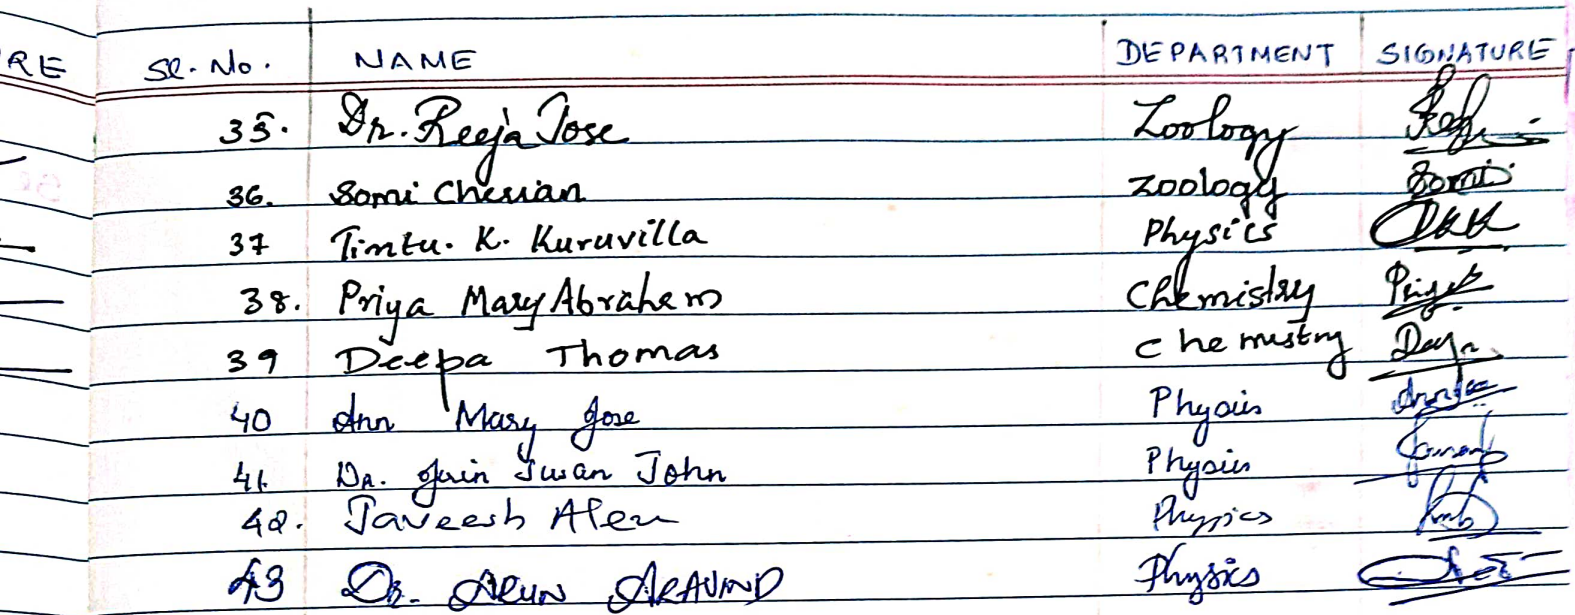 RE Sl. No. NAME DEPARTMENT SIGNATURE
35. Dr. Reeja Jose Zoology
36. Somi Cherian Zoology Somi
37 Tintu. K. Kuruvilla Physics
38. Priya Mary Abraham Chemistry
39 Deepa Thomas Chemistry
40 Ann Mary Jose Physics
41. Dr. John Physics
42. Physics
43 Dr. ARUN ARAVIND Physics